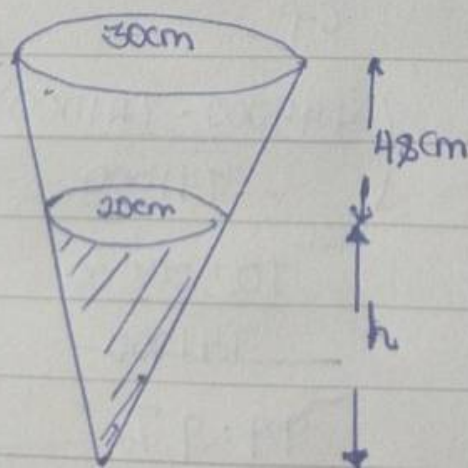 30cm
48cm
20cm
h